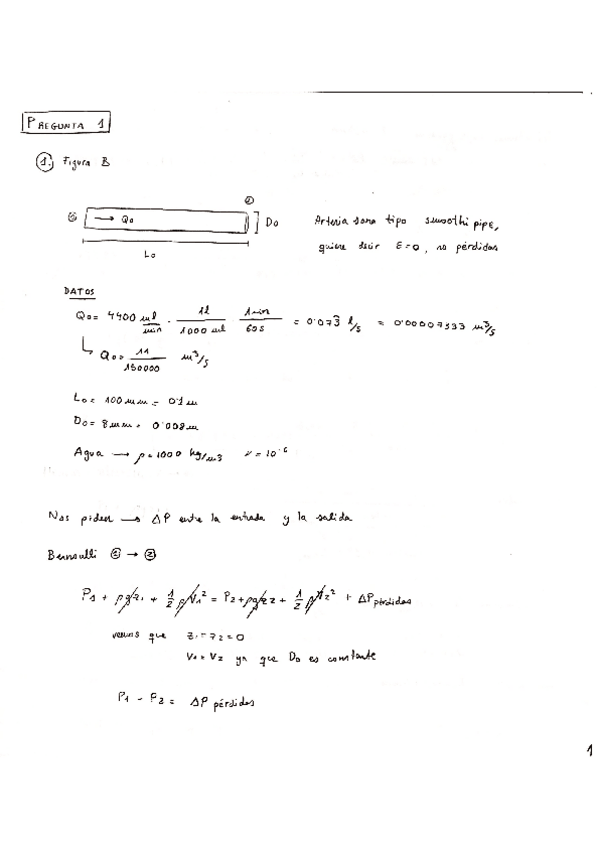 PREGUNTA 1
1. Figura B
① → Q0 ② D0
L0
Arteria sana tipo smooth pipe,
quiere decir ε=0, no pérdidas
DATOS
Q0= 4400 ml/min · 1l/1000 ml · 1min/60s = 0'073 l/s = 0'00007333 m³/s
Q0= 11/150000 m³/s
L0= 100mm= 0'1m
D0= 8mm= 0'008m
Agua → ρ=1000 kg/m3 ν=10⁻⁶
Nos piden → ΔP entre la entrada y la salida
Bernoulli ① → ②
P1 + ρgz1 + 1/2 ρV1² = P2+ρgz2 + 1/2 ρV2² + ΔP pérdidas
vemos que z1=z2=0
V1=V2 ya que D0 es constante
P1 - P2 = ΔP pérdidas
1